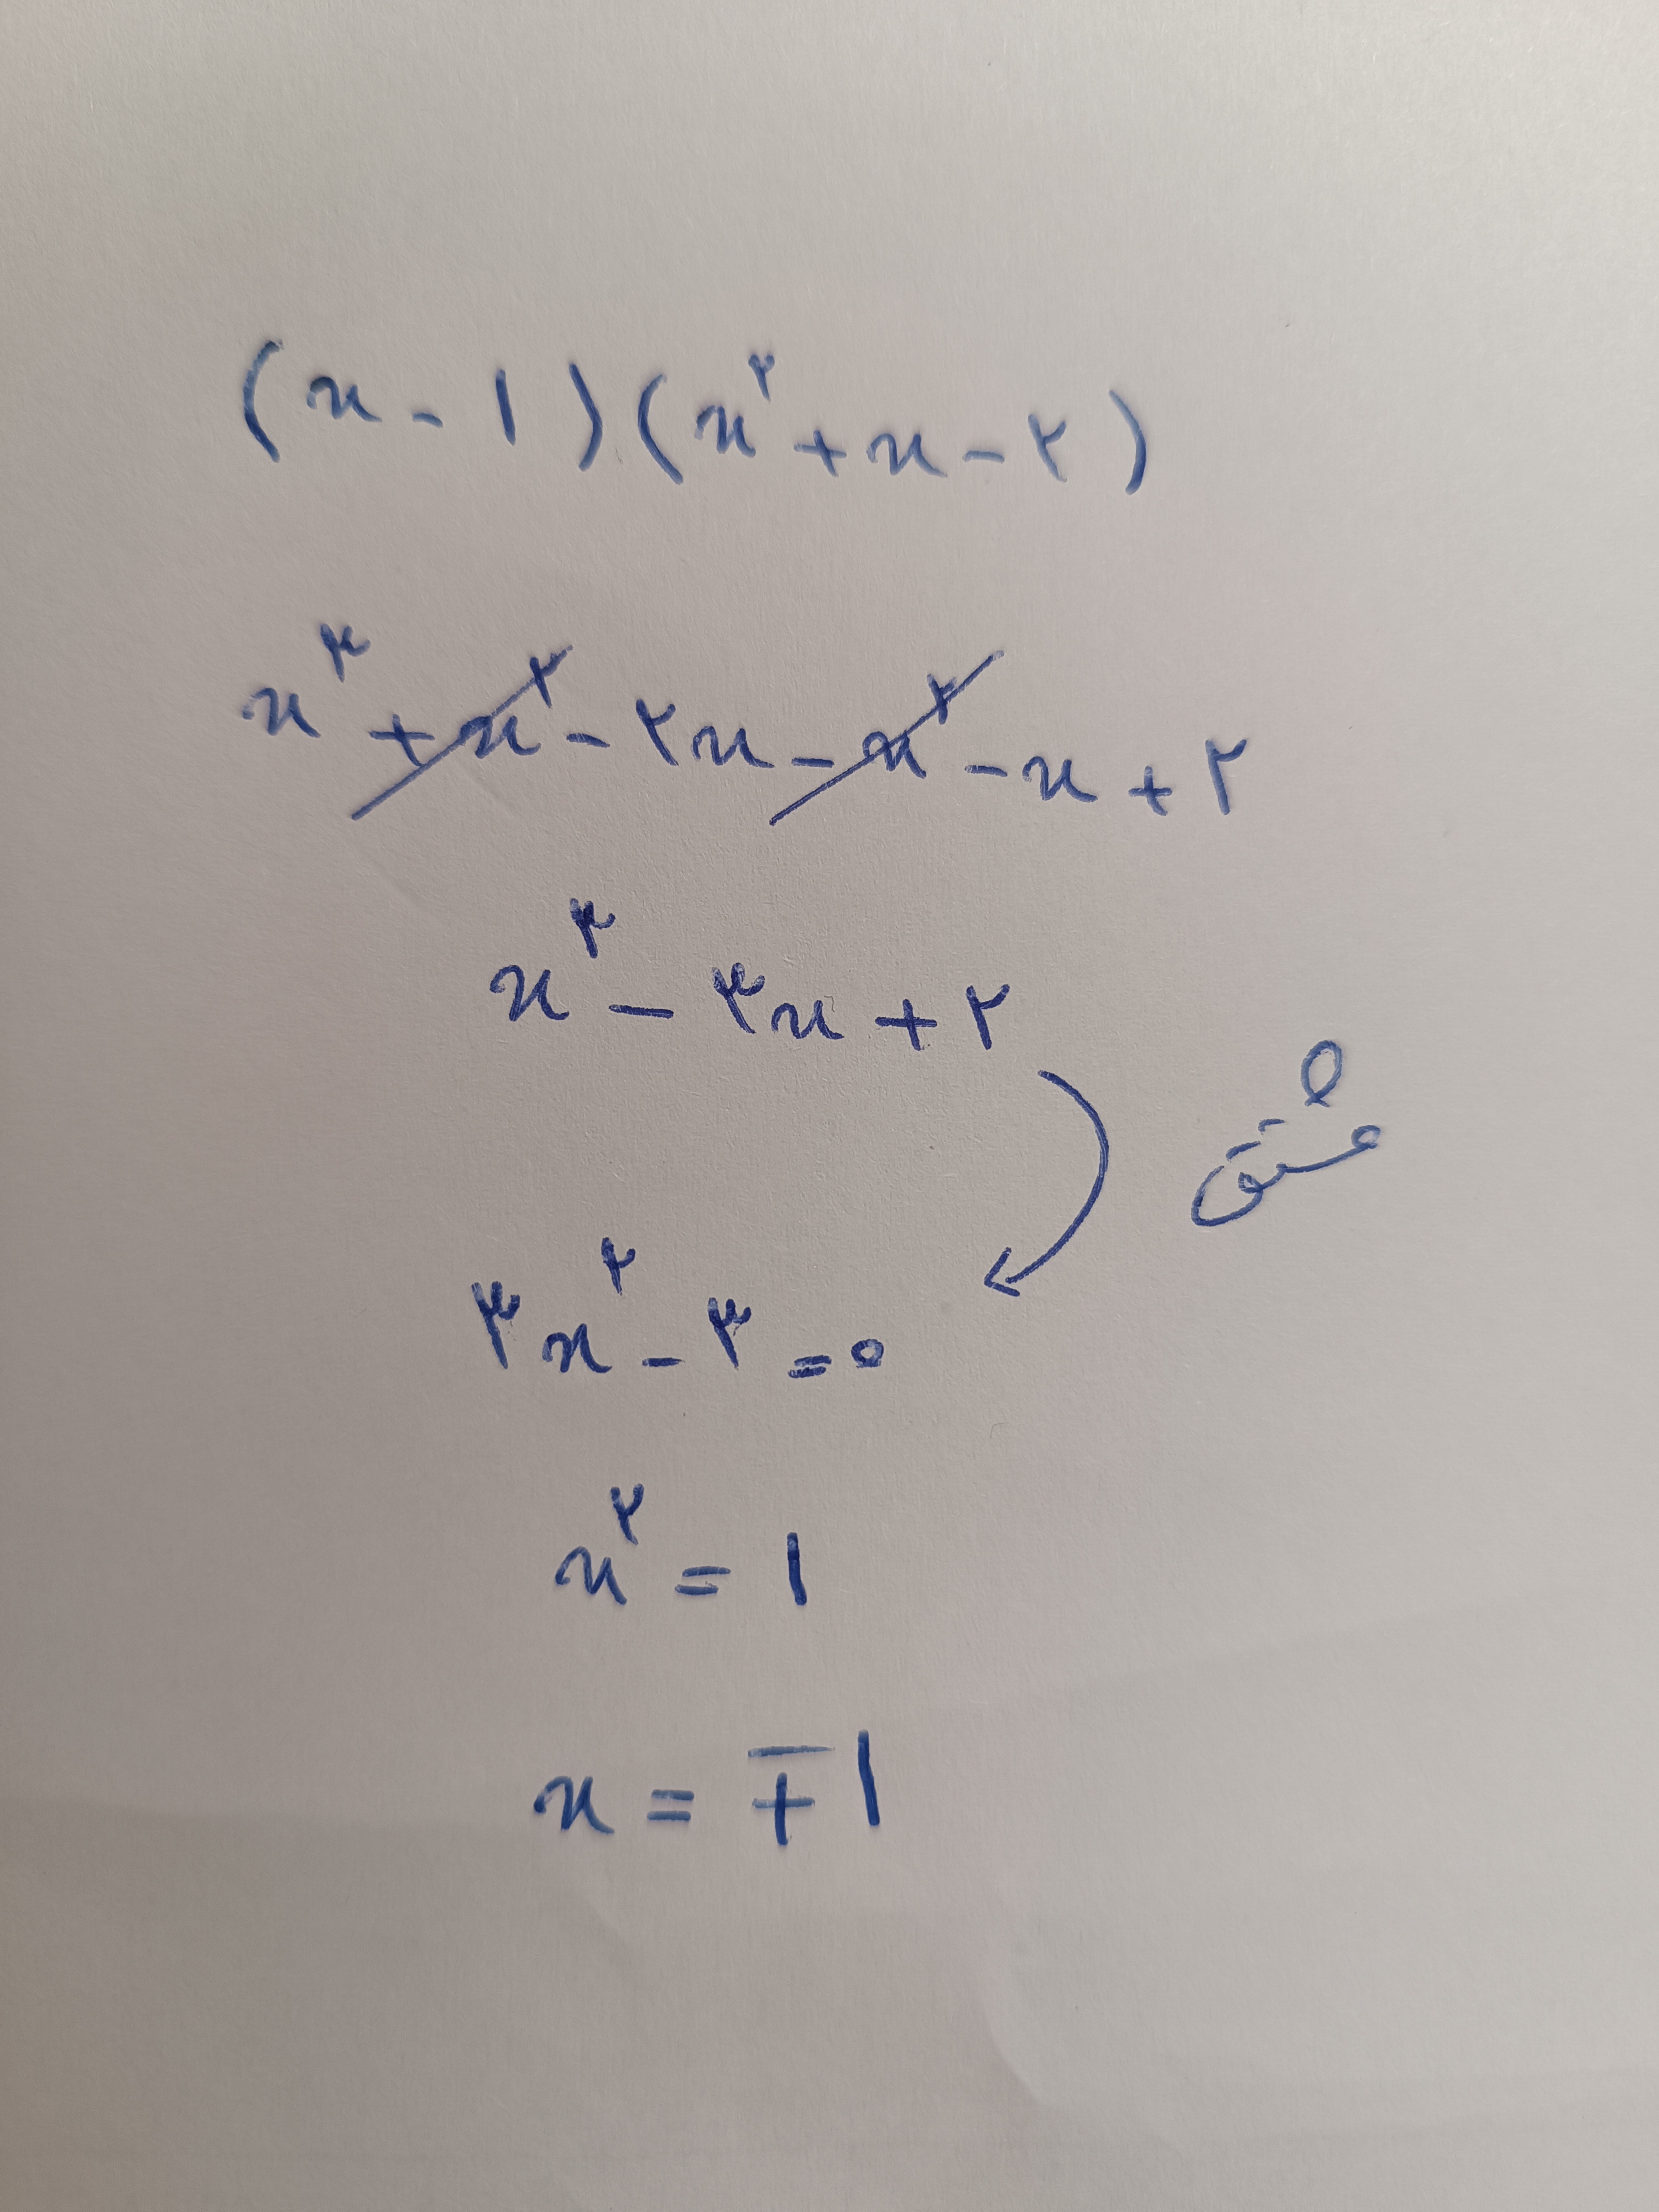 (x - ۱)(x^۲ + x - ۲)
x^۳ + x^۲ - ۲x - x^۲ - x + ۲
x^۳ - ۳x + ۲
مشتق
۳x^۲ - ۳ = ۰
x^۲ = ۱
x = ∓۱